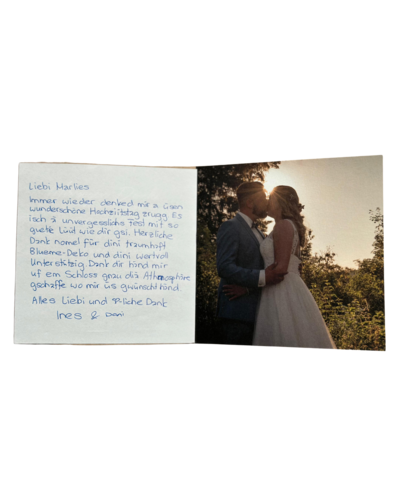 Liebi Marlies
Immer wieder denked mir a üsen
wunderschöne Hochziitstag zrugg. Es
isch s unvergesslichs Fest mit so
guete Lüüt wie dir gsi. Herzliche
Dank nomel für dini traumhaft
Blueme-Deko und dini wertvoll
Unterstützig. Dank dir händ mir
uf em Schloss grau diä Athmosphäre
gschaffe wo mir üs gwünscht händ.
Alles Liebi und ♡liche Dank
Ines & Dani